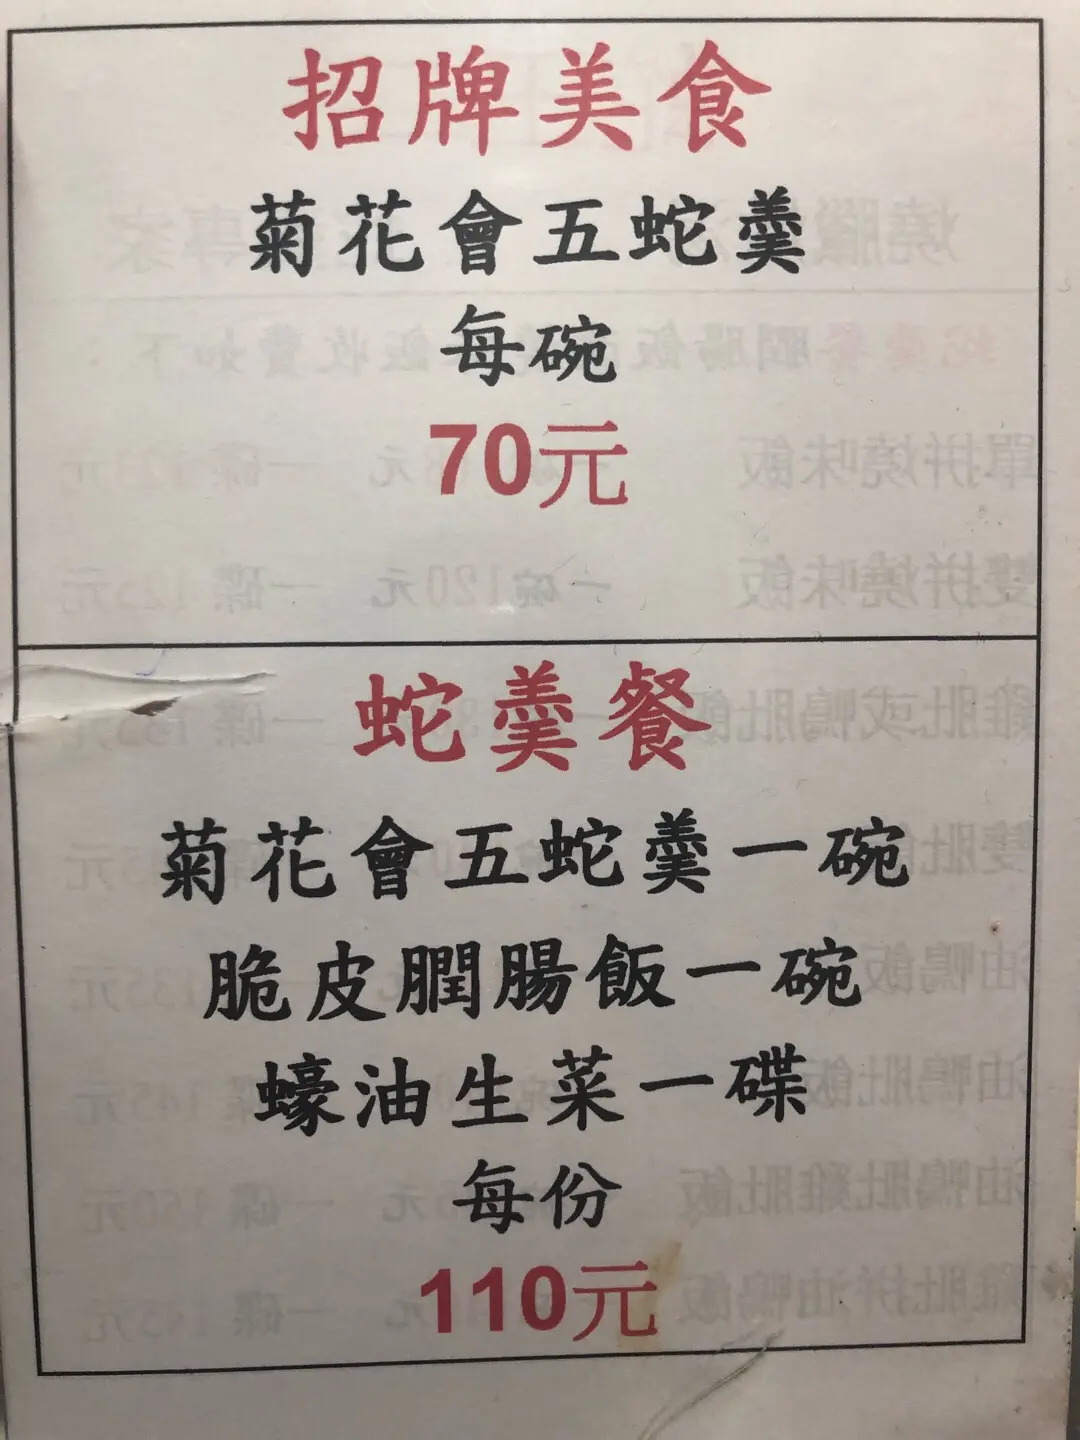 招牌美食
菊花會五蛇羹
每碗
70元
蛇羹餐
菊花會五蛇羹一碗
脆皮膶腸飯一碗
蠔油生菜一碟
每份
110元